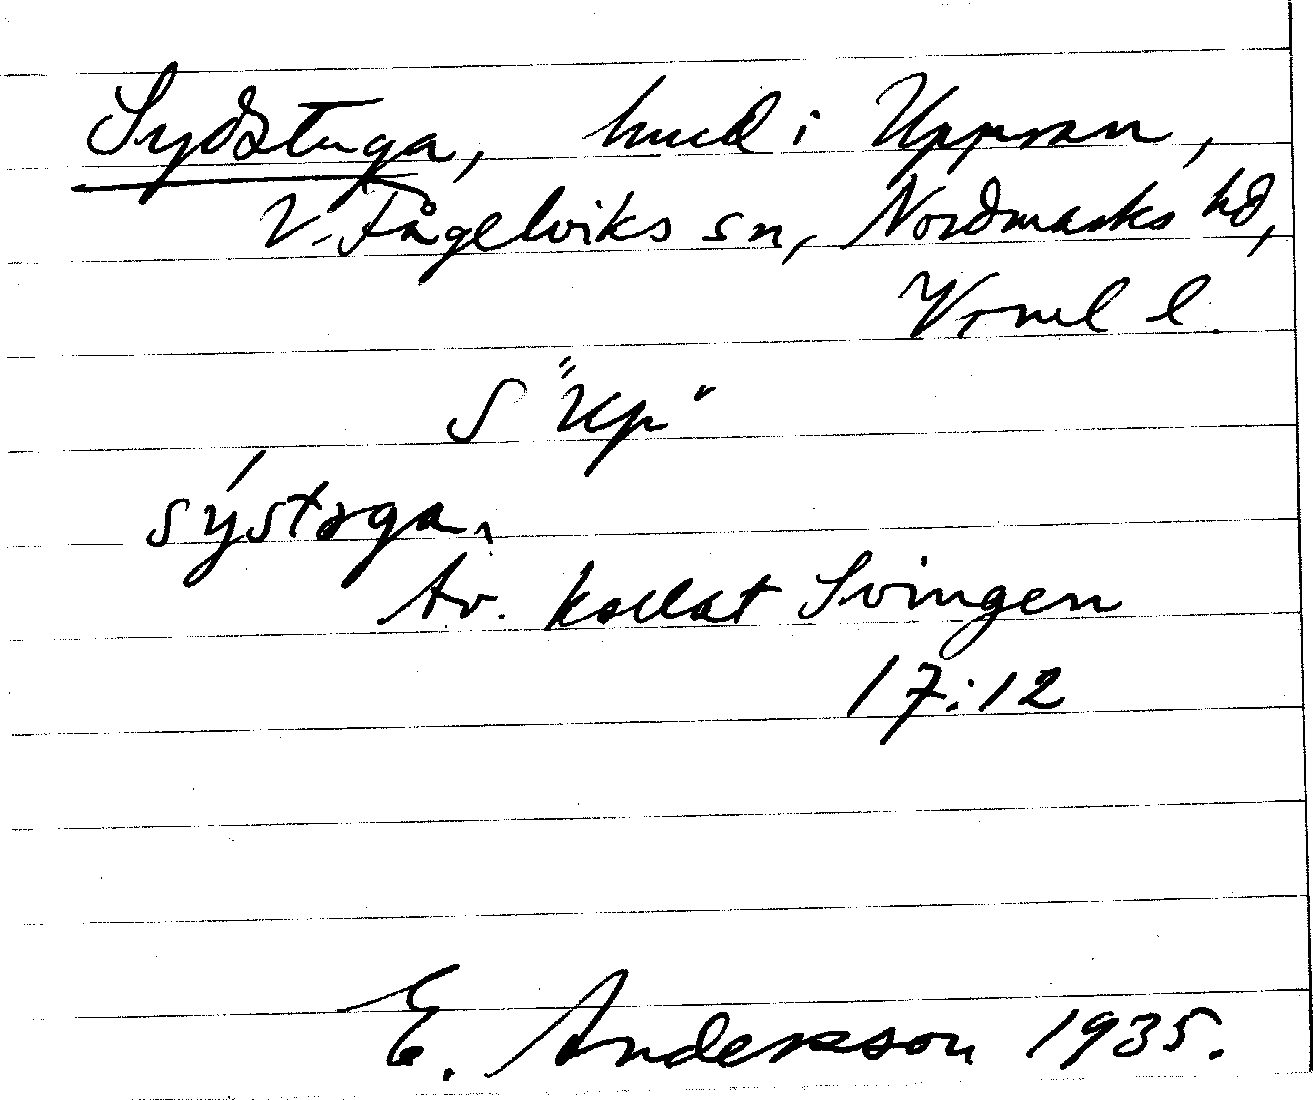 Sydstuga, hmd i Uppsan,
V. Fågelviks sn, Nordmarks hd,
Vrml l.
S "Up"
sýstɔga,
Av. kallat Svingen
17:12
E. Andersson 1935.